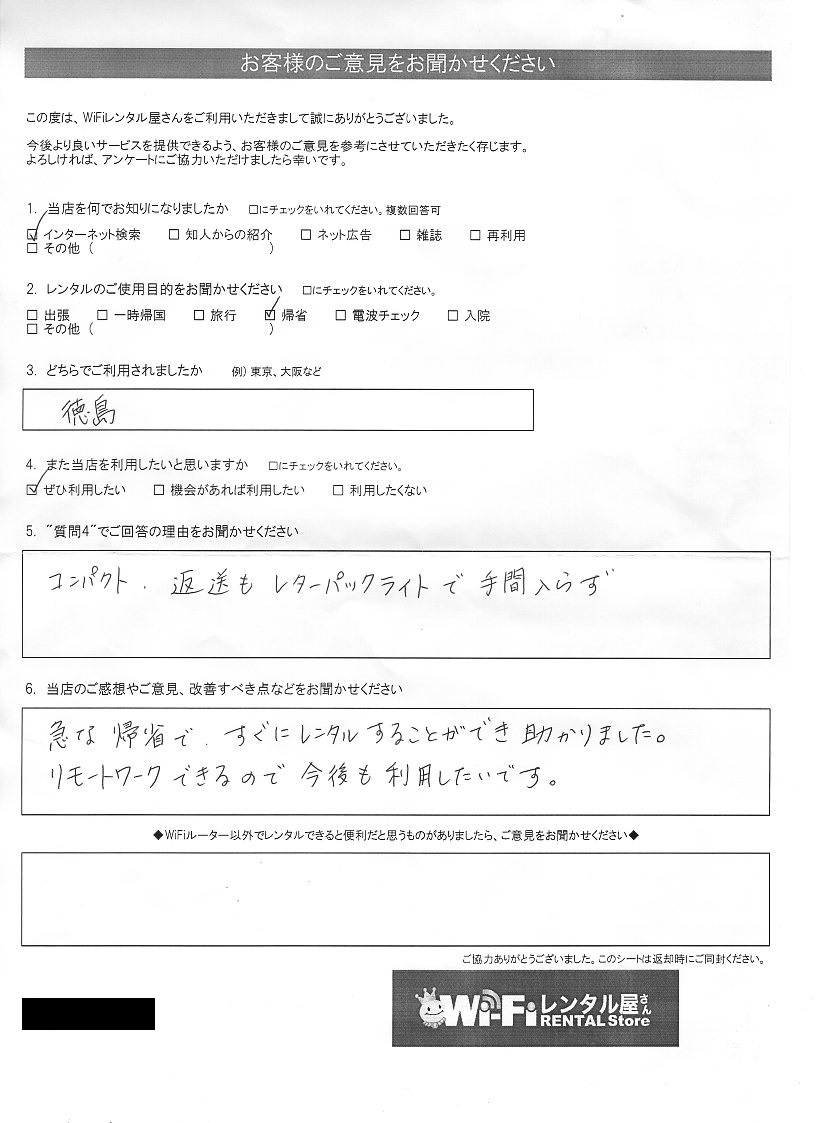 お客様のご意見をお聞かせください
この度は、WiFiレンタル屋さんをご利用いただきまして誠にありがとうございました。
今後より良いサービスを提供できるよう、お客様のご意見を参考にさせていただきたく存じます。
よろしければ、アンケートにご協力いただけましたら幸いです。
1. 当店を何でお知りになりましたか □にチェックをいれてください。複数回答可
☑ インターネット検索 □ 知人からの紹介 □ ネット広告 □ 雑誌 □ 再利用
□ その他 ( )
2. レンタルのご使用目的をお聞かせください □にチェックをいれてください。
□ 出張 □ 一時帰国 □ 旅行 ☑ 帰省 □ 電波チェック □ 入院
□ その他 ( )
3. どちらでご利用されましたか 例) 東京、大阪など
徳島
4. また当店を利用したいと思いますか □にチェックをいれてください。
☑ ぜひ利用したい □ 機会があれば利用したい □ 利用したくない
5. "質問4"でご回答の理由をお聞かせください
コンパクト、返送もレターパックライトで手間入らず
6. 当店のご感想やご意見、改善すべき点などをお聞かせください
急な帰省で、すぐにレンタルすることができ助かりました。
リモートワークできるので今後も利用したいです。
◆WiFiルーター以外でレンタルできると便利だと思うものがありましたら、ご意見をお聞かせください◆
ご協力ありがとうございました。このシートは返却時にご同封ください。
Wi-Fiレンタル屋さん
RENTAL Store